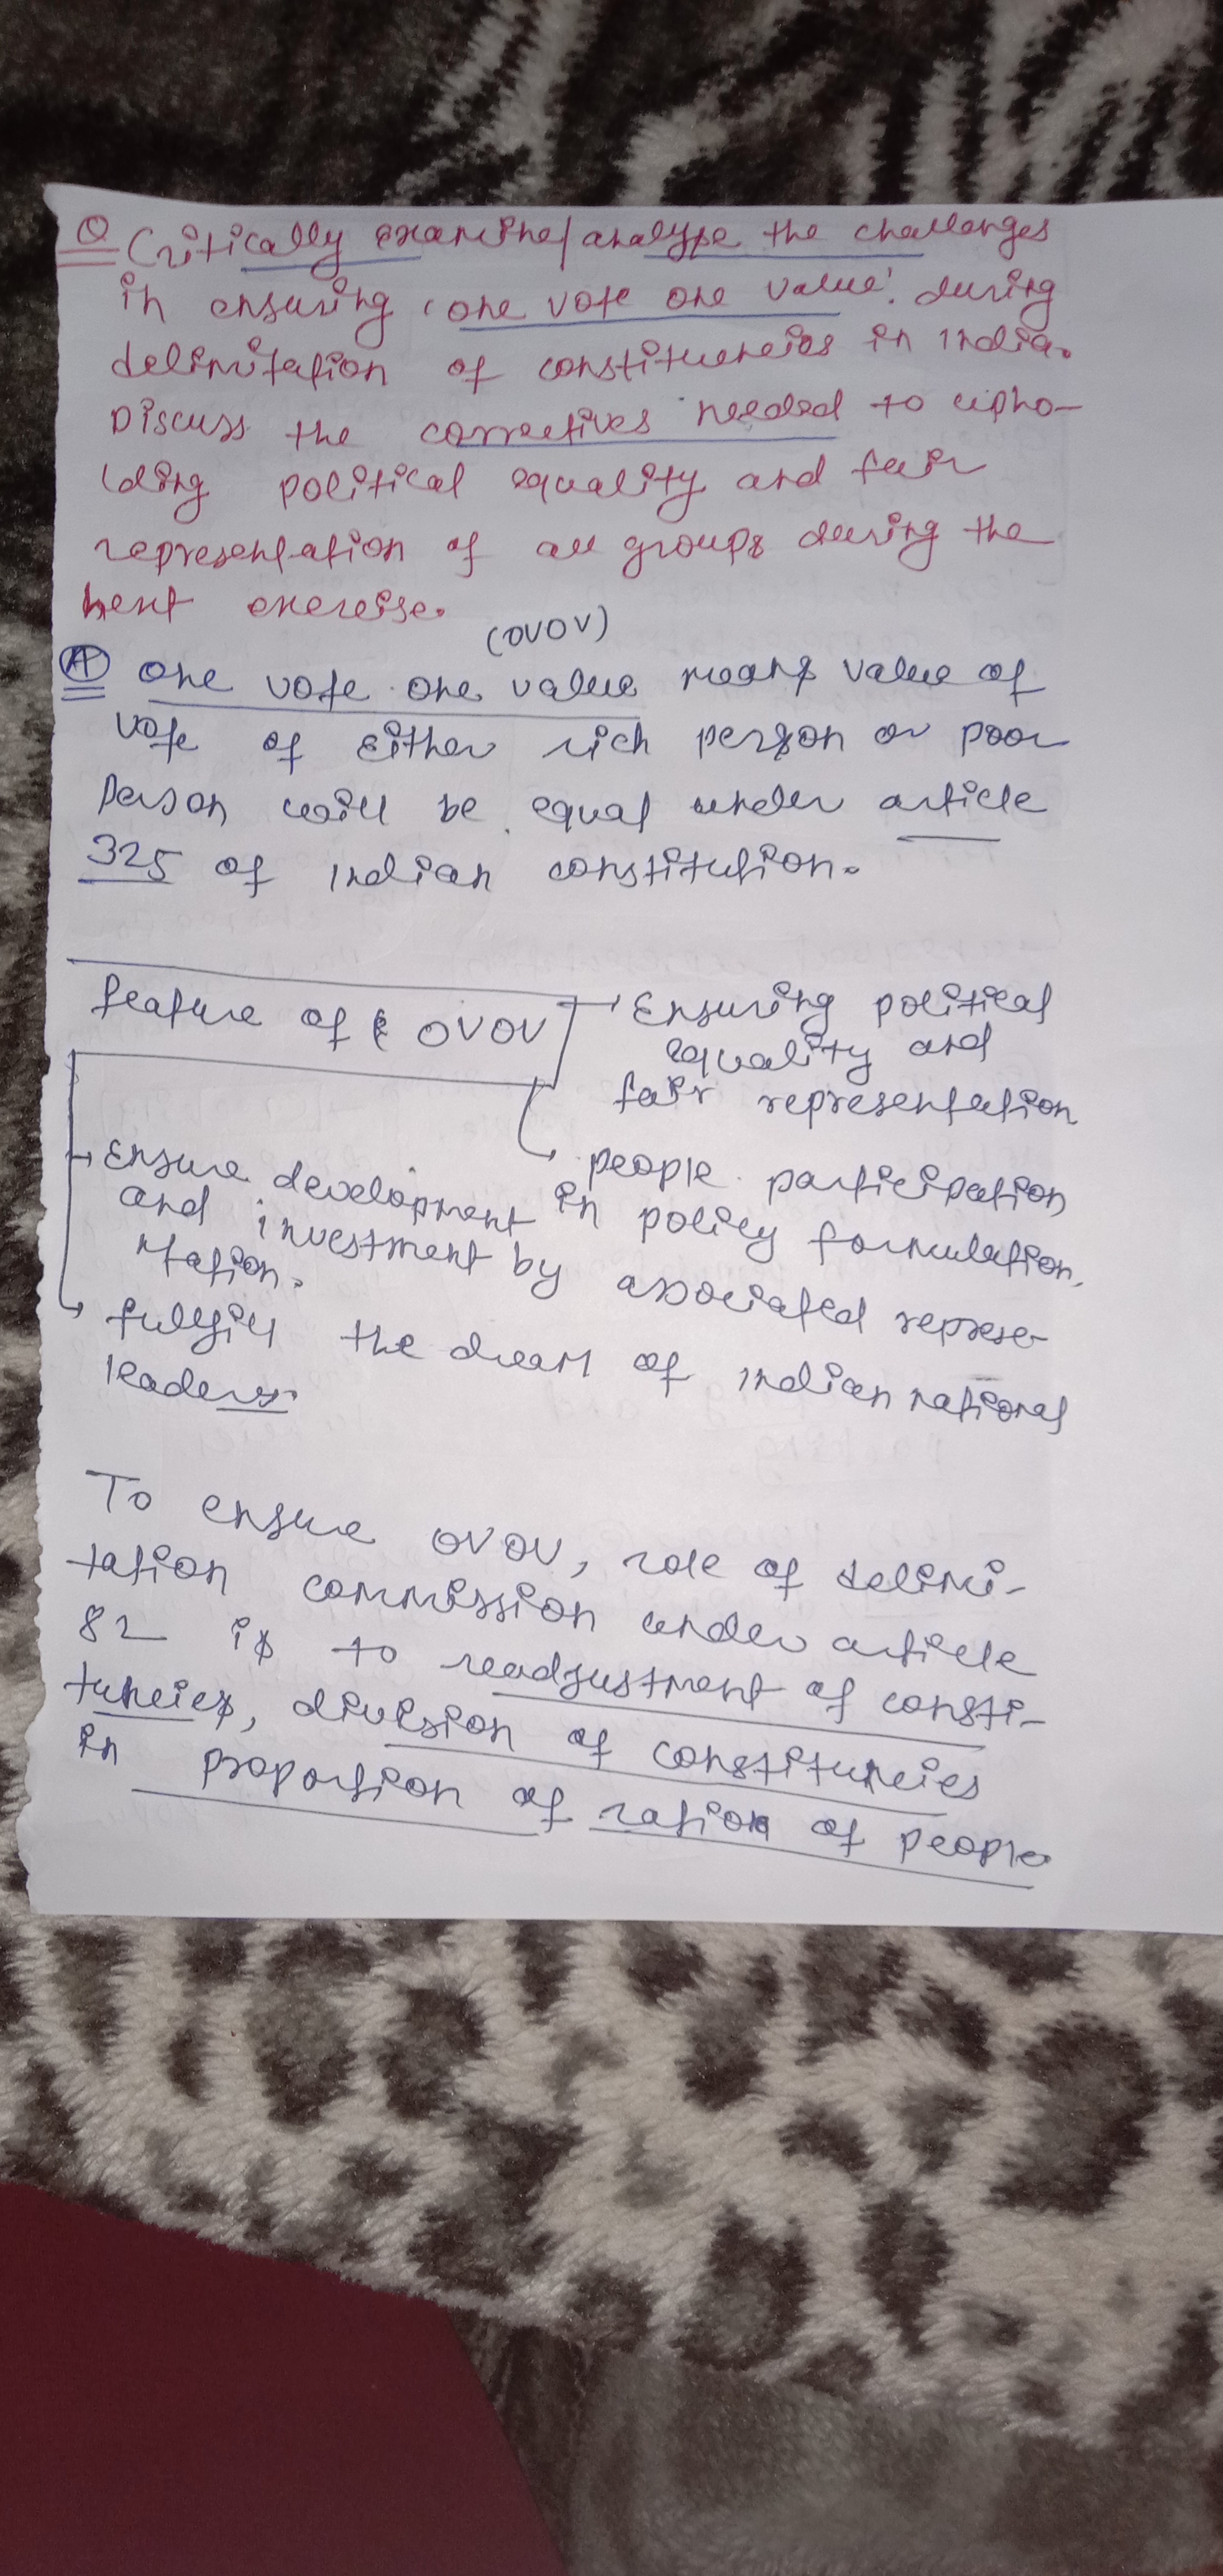 Q Critically examine/analyse the challenges
in ensuring 'one vote one value' during
delimitation of constituencies in India.
Discuss the correctives needed to upho-
lding political equality and fair
representation of all groups during the
next exercise.
(OVOV)
A one vote one value means value of
vote of Either rich person or poor
Person will be equal under article
325 of Indian constitution.
feature of OVOV
Ensuring political
equality and
fair representation
people participation
in policy formulation.
Ensure development
and investment by associated represe-
ntation.
fullfill the dream of Indian national
leaders.
To ensure OVOV, role of delimi-
tation commission under article
82 is to readjustment of consti-
tuncies, division of constituncies
in proportion of ration of people.